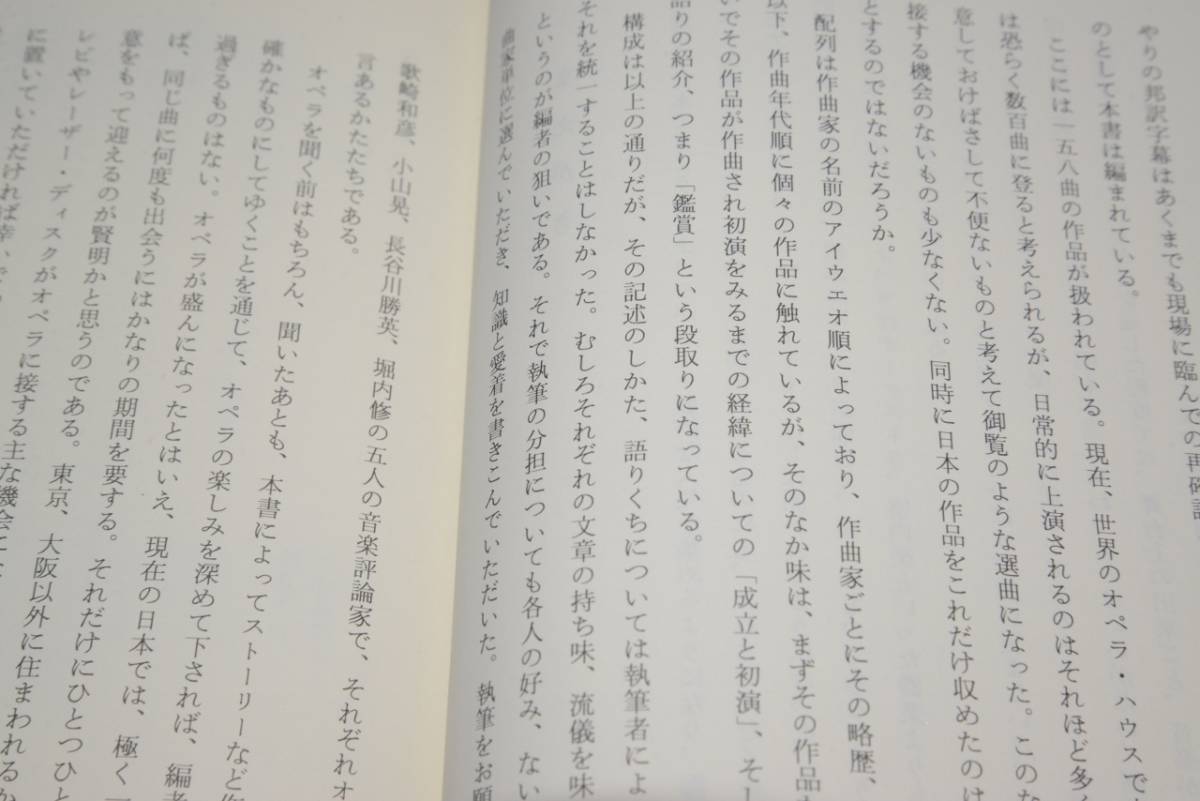 やりの邦訳字幕はあくまでも現場に臨んでの再確認
のとして本書は編まれている。
ここには一五八曲の作品が扱われている。現在、世界のオペラ・ハウスで
は恐らく数百曲に登ると考えられるが、日常的に上演されるのはそれほど多く
意しておけばさして不便ないものと考えて御覧のような選曲になった。このな
接する機会のないものも少なくない。同時に日本の作品をこれだけ収めたのは
とするのではないだろうか。
配列は作曲家の名前のアイウエオ順によっており、作曲家ごとにその略歴、
以下、作曲年代順に個々の作品に触れているが、そのなか味は、まずその作品
いでその作品が作曲され初演をみるまでの経緯についての「成立と初演」、そし
語りの紹介、つまり「鑑賞」という段取りになっている。
構成は以上の通りだが、その記述のしかた、語りくちについては執筆者によ
それを統一することはしなかった。むしろそれぞれの文章の持ち味、流儀を味
というのが編者の狙いである。それで執筆の分担についても各人の好み、ない
曲家単位に選んでいただき、知識と愛着を書きこんでいただいた。執筆をお願
歌崎和彦、小山晃、長谷川勝英、堀内修の五人の音楽評論家で、それぞれオ
言あるかたたちである。
オペラを聞く前はもちろん、聞いたあとも、本書によってストーリーなど
確かなものにしてゆくことを通じて、オペラの楽しみを深めて下されば、編者
過ぎるものはない。オペラが盛んになったとはいえ、現在の日本では、極く一
ば、同じ曲に何度も出会うにはかなりの期間を要する。それだけにひとつひと
意をもって迎えるのが賢明かと思うのである。東京、大阪以外に住まわれるか
レビやレーザー・ディスクがオペラに接する主な機会に
に置いていただければ幸い